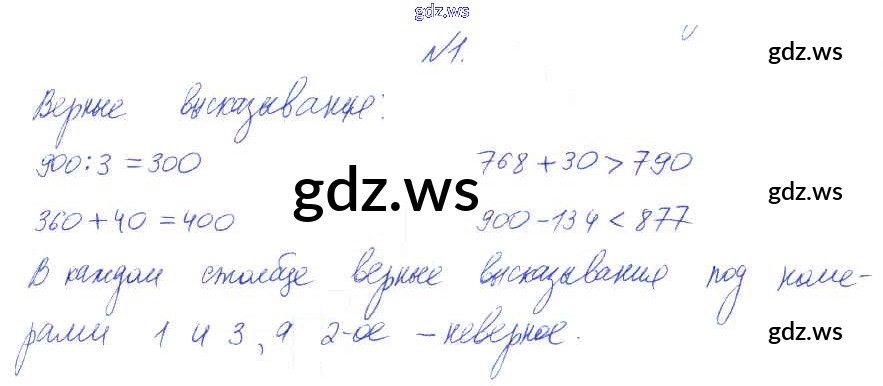 gdz.ws
№1.
gdz.ws
Верные высказывание:
900:3=300 768+30>790
gdz.ws
gdz.ws
360+40=400 900-134<877
В каждом столбце верные высказывания под номе-
рами 1 и 3, а 2-ое - неверное.
gdz.ws